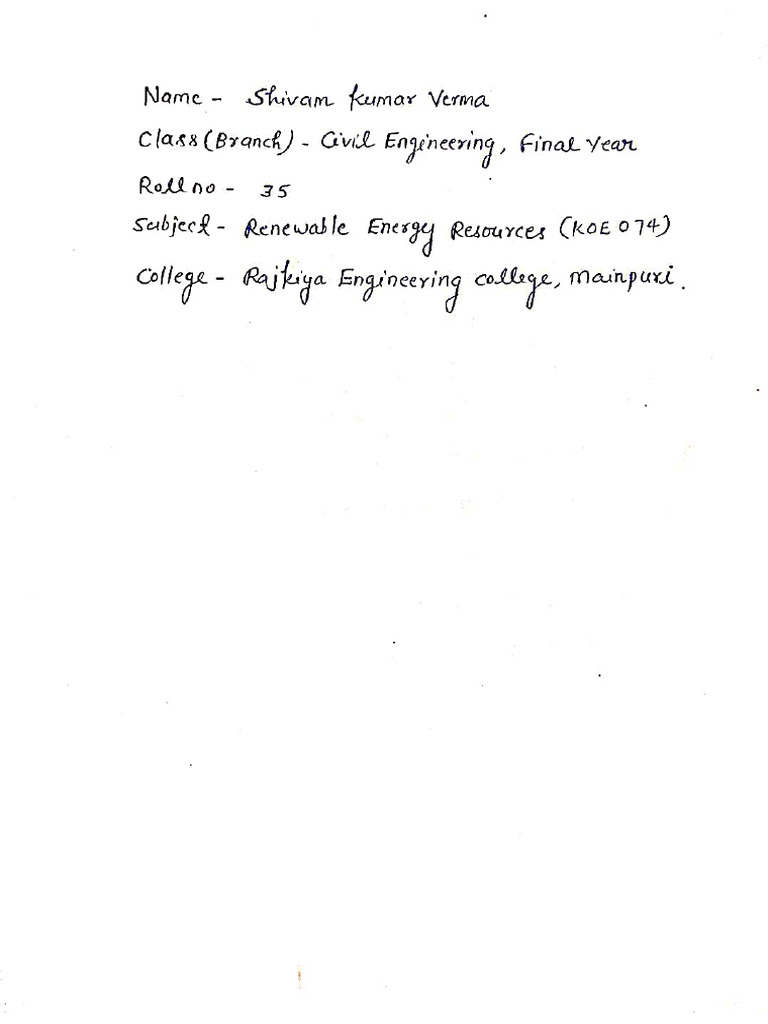 Name - Shivam Kumar Verma
Class (Branch) - Civil Engineering, Final Year
Roll no - 35
Subject - Renewable Energy Resources (KOE 074)
College - Rajkiya Engineering college, Mainpuri.